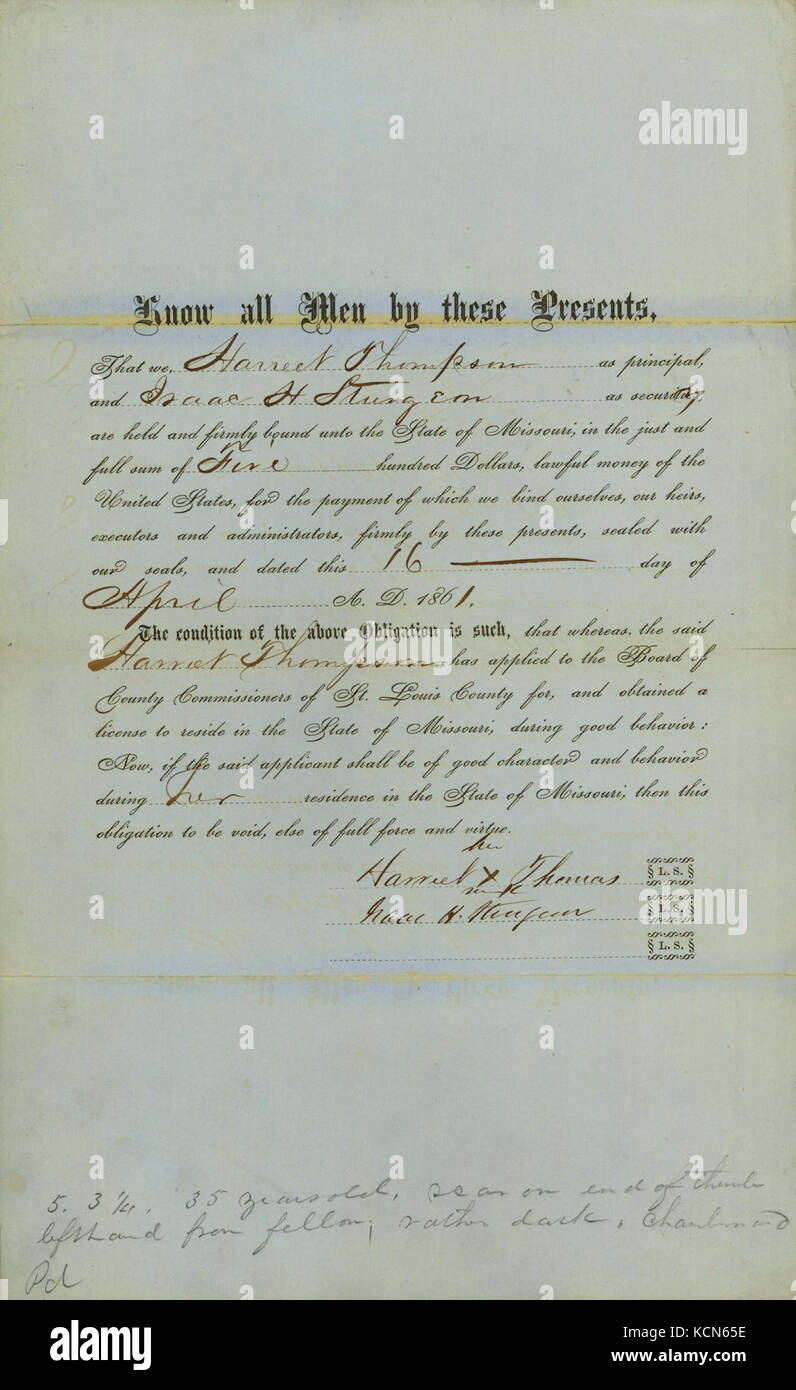 Know all Men by these Presents,
That we, Harriet Thompson as principal,
and Isaac H Sturgeon as security,
are held and firmly bound unto the State of Missouri, in the just and
full sum of Five hundred Dollars, lawful money of the
United States, for the payment of which we bind ourselves, our heirs,
executors and administrators, firmly by these presents, sealed with
our seals, and dated this 16 day of
April A. D. 1861.
The condition of the above Obligation is such, that whereas, the said
Harriet Thompson has applied to the Board of
County Commissioners of St. Louis County for, and obtained a
license to reside in the State of Missouri, during good behavior:
Now, if the said applicant shall be of good character and behavior
during her residence in the State of Missouri, then this
obligation to be void, else of full force and virtue.
her
Harriet X Thomas § L. S. §
mark
Isaac H. Sturgeon § L. S. §
§ L. S. §
5. 3 1/4. 35 years old, scar on end of thumb
left hand from fellon; rather dark, Chambermaid
Pd
alamy
a alamy stock photo
KCN65E
www.alamy.com